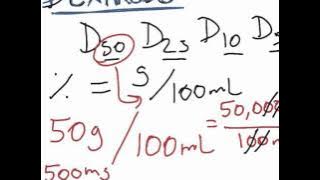 D50 D25 D10 D
% = g/100mL
50g/100mL = 50,00
100mL
500mg